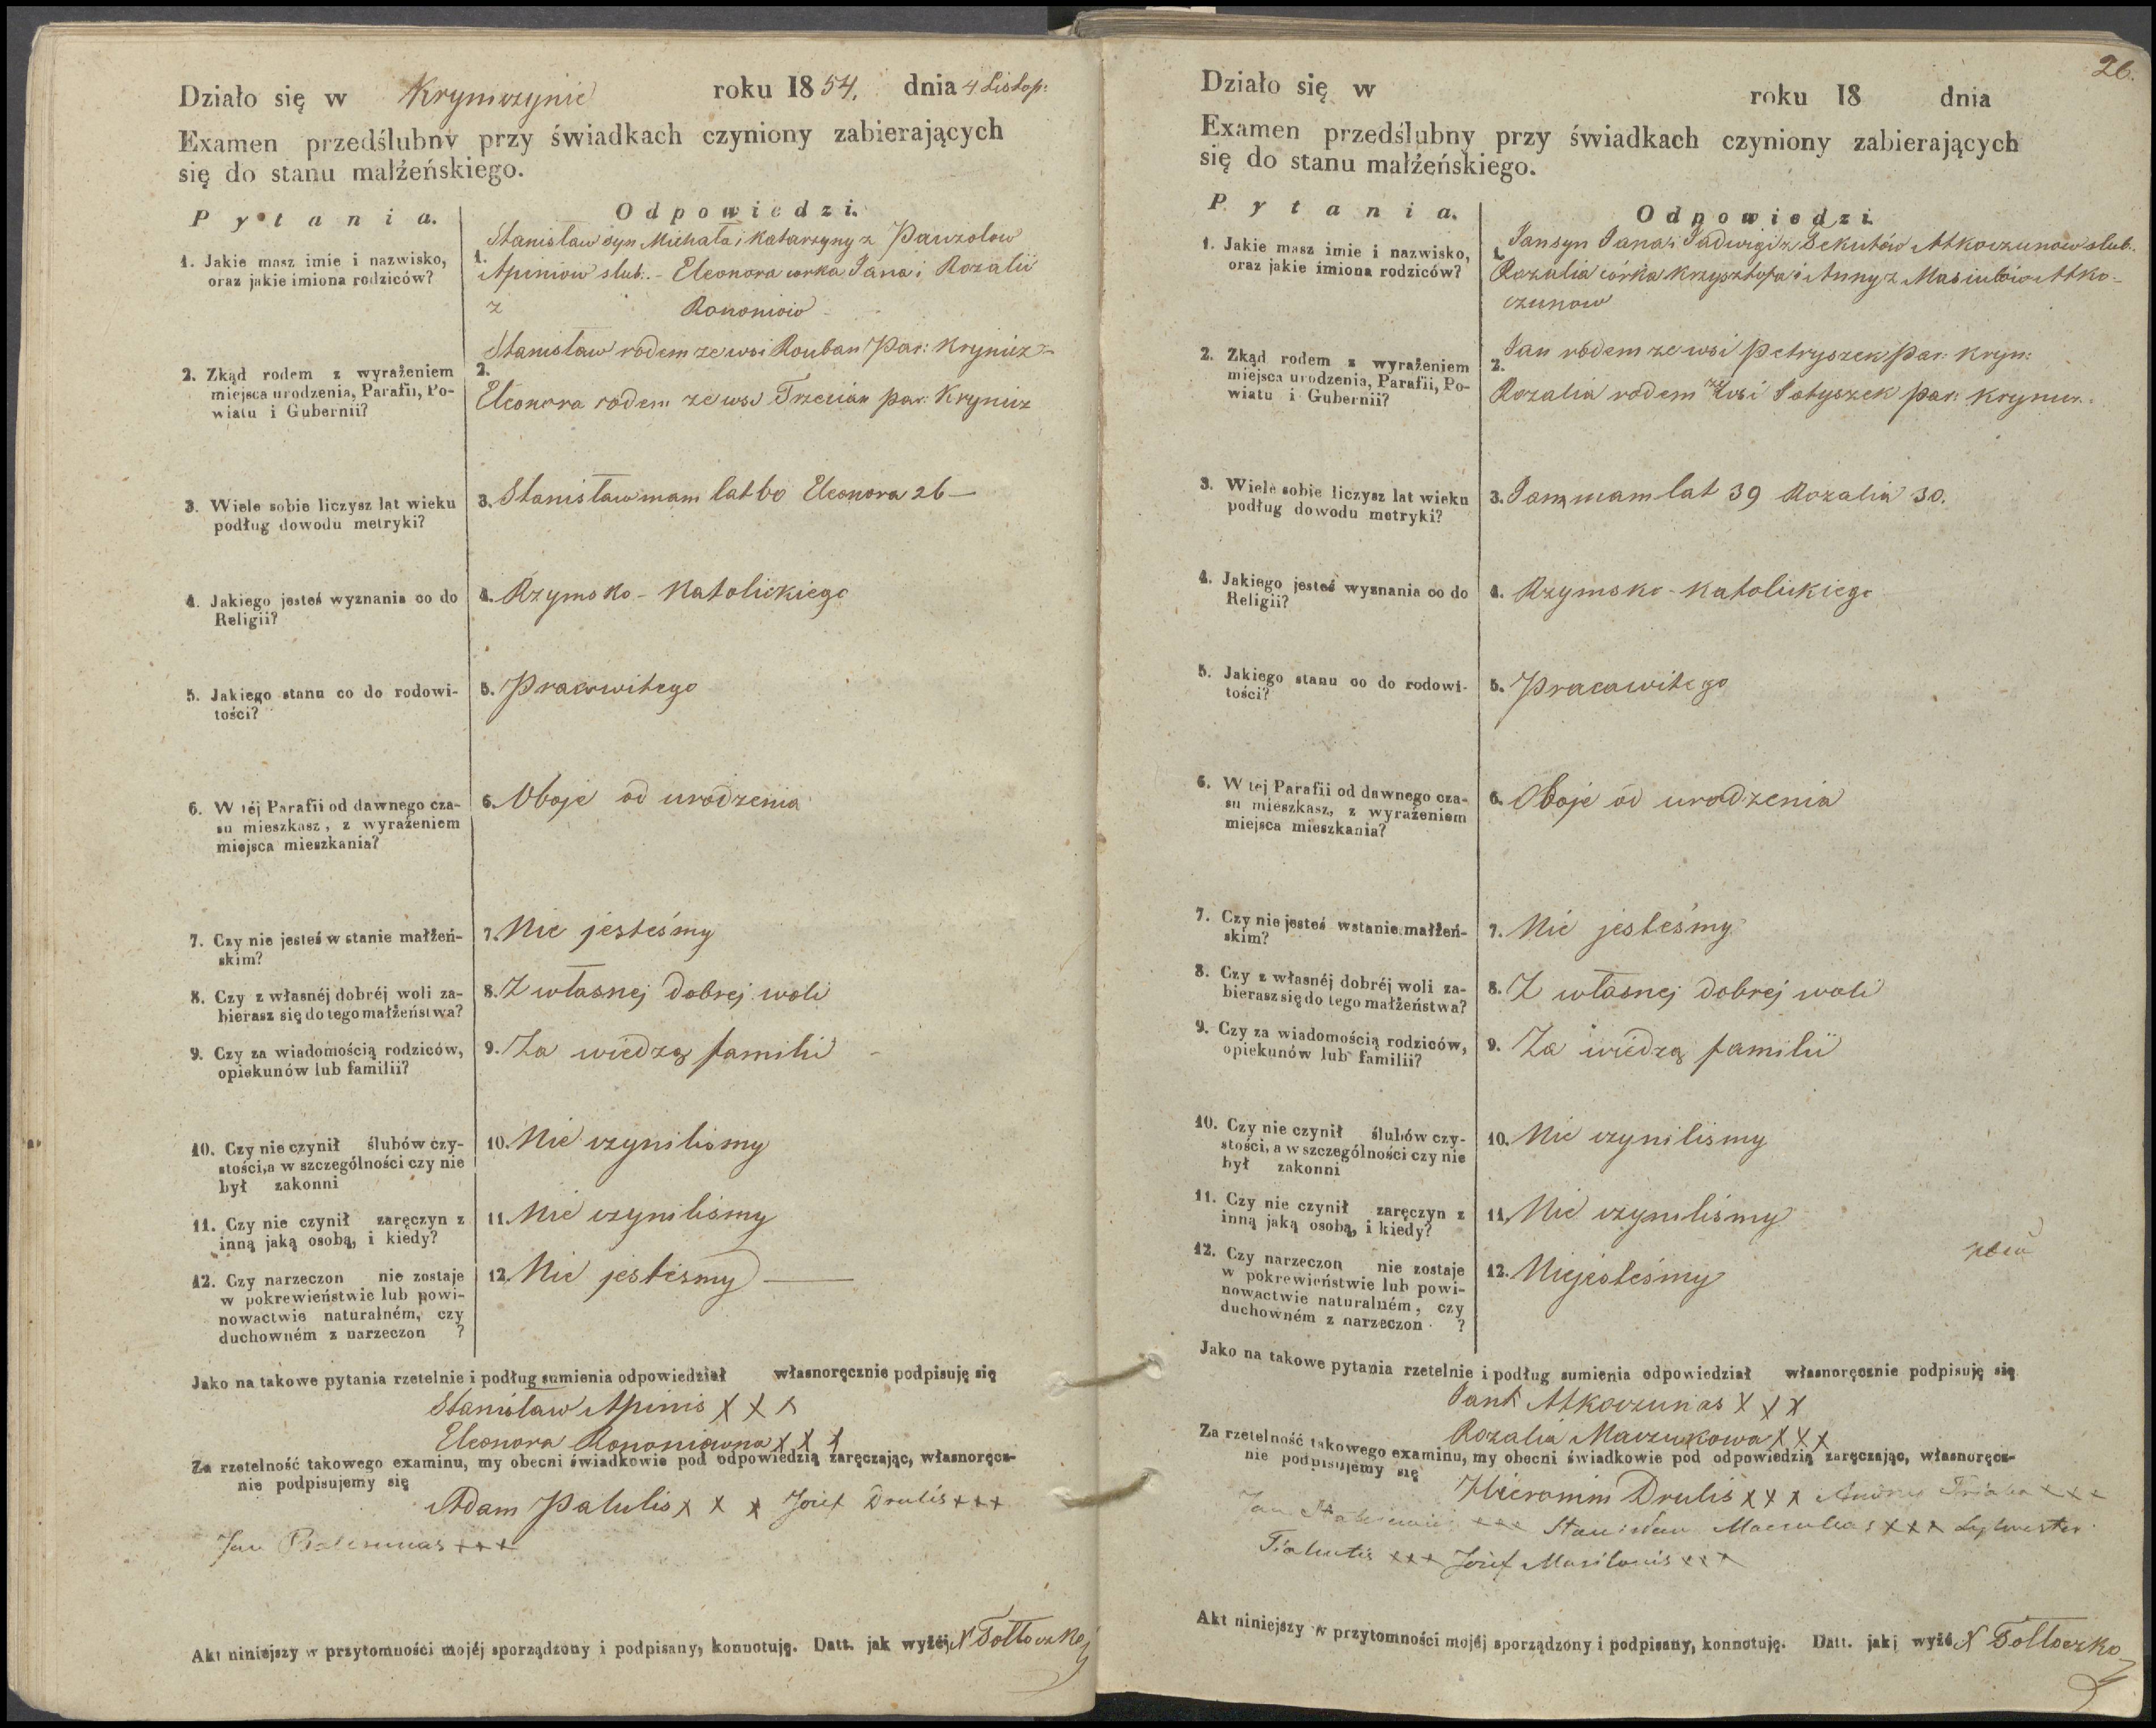 Działo się w Krymczynie roku 1854. dnia 4 Listop:
Examen przedślubny przy świadkach czyniony zabierających
się do stanu małżeńskiego.
Pytania.
Odpowiedzi.
1. Jakie masz imie i nazwisko,
oraz jakie imiona rodziców?
1. Stanisław syn Michała i Katarzyny z Pawzolow
Apiniow slub.- Eleonora corka Jana i Rozalii
z Rononiow
2. Zkąd rodem z wyrażeniem
miejsca urodzenia, Parafii, Po-
wiatu i Gubernii?
2. Stanisław rodem ze wsi Rouban Par: Krynicz
Eleonora rodem ze wsi Trzecian par: Krynicz
3. Wiele sobie liczysz lat wieku
podług dowodu metryki?
3. Stanisław mam lat 60 Eleonora 26 —
4. Jakiego jesteś wyznania co do
Religii?
4. Rzymsko - Katolickiego
5. Jakiego stanu co do rodowi-
tości?
5. Pracowitego
6. W téj Parafii od dawnego cza-
su mieszkasz, z wyrażeniem
miejsca mieszkania?
6. Oboje od urodzenia
7. Czy nie jesteś w stanie małżeń-
skim?
7. Nie jesteśmy
8. Czy z własnéj dobréj woli za-
bierasz się do tego małżeństwa?
8. Z własnej dobrej woli
9. Czy za wiadomością rodziców,
opiekunów lub familii?
9. Za wiedzą familii
10. Czy nie czynił ślubów czy-
stości,a w szczególności czy nie
był zakonni
10. Nie czynilismy
11. Czy nie czynił zaręczyn z
inną jaką osobą, i kiedy?
11. Nie czyniliśmy
12. Czy narzeczon nie zostaje
w pokrewieństwie lub powi-
nowactwie naturalném, czy
duchowném z narzeczon ?
12. Nie jestesmy —
Jako na takowe pytania rzetelnie i podług sumienia odpowiedział własnoręcznie podpisuję się
Stanisław Apinis X X X
Eleonora Rononiowna X X X
Za rzetelność takowego examinu, my obecni świadkowie pod odpowiedzią zaręczając, własnoręcz-
nie podpisujemy się
Adam Patulis X X X Jozef Drulis +++
Jan +++
Akt niniejszy w przytomności mojéj sporządzony i podpisany, konnotuję. Datt. jak wyżéj N Tołłoczko
26.
Działo się w roku 18 dnia
Examen przedślubny przy świadkach czyniony zabierających
się do stanu małżeńskiego.
Pytania.
Odpowiedzi.
1. Jakie masz imie i nazwisko,
oraz jakie imiona rodziców?
1. Jan syn Jana i Jadwigi z Sekutów Atkoczunow slub.
Rozalia córka Krzysztofa i Anny z Masiulów Atko-
czunow
2. Zkąd rodem z wyrażeniem
miejsca urodzenia, Parafii, Po-
wiatu i Gubernii?
2. Jan rodem ze wsi Petryszek par: Kryn:
Rozalia rodem ze wsi Jotyszek par: Krynicz.
3. Wiele sobie liczysz lat wieku
podług dowodu metryki?
3. Jan mam lat 39 Rozalia 30.
4. Jakiego jesteś wyznania co do
Religii?
4. Rzymsko - Katolickiego
5. Jakiego stanu co do rodowi-
tości?
5. Pracawitego
6. W tej Parafii od dawnego cza-
su mieszkasz, z wyrażeniem
miejsca mieszkania?
6. Oboje od urodzenia
7. Czy nie jesteś wstanie małżeń-
skim?
7. Nie jesteśmy
8. Czy z własnéj dobréj woli za-
bierasz się do tego małżeństwa?
8. Z własnej dobrej woli
9. Czy za wiadomością rodziców,
opiekunów lub familii?
9. Za wiedzą familii
10. Czy nie czynił ślubów czy-
stości, a w szczególności czy nie
był zakonni
10. Nie czynilismy
11. Czy nie czynił zaręczyn z
inną jaką osobą, i kiedy?
11. Nie czyniliśmy
12. Czy narzeczon nie zostaje
w pokrewieństwie lub powi-
nowactwie naturalném, czy
duchowném z narzeczon ?
12. Niejesteśmy
Jako na takowe pytania rzetelnie i podług sumienia odpowiedział własnoręcznie podpisuję się
Jan Atkoczunas X X X
Rozalia Maczukowa X X X
Za rzetelność takowego examinu, my obecni świadkowie pod odpowiedzią zaręczając, własnoręcz-
nie podpisujemy się
Hieronim Drulis X X X Andrzej +++
Jan +++ Stanisław +++ Sylwester
+++ Jozef Masilonis +++
Akt niniejszy w przytomności mojéj sporządzony i podpisany, konnotuję. Datt. jakj wyżé N Tołłoczko